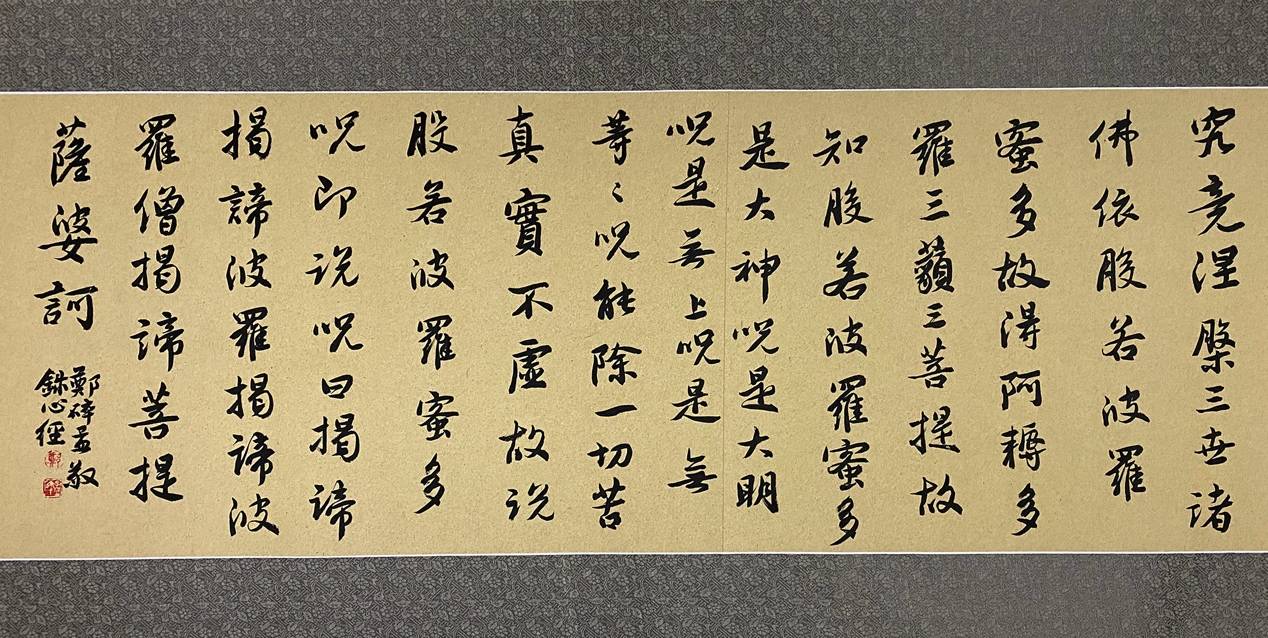 究竟涅槃三世諸
佛依般若波羅
蜜多故得阿耨多
羅三藐三菩提故
知般若波羅蜜多
是大神呪是大明
呪是無上呪是無
等〻呪能除一切苦
真實不虛故说
般若波羅蜜多
呪即说呪曰揭諦
揭諦波羅揭諦波
羅僧揭諦菩提
薩婆訶
鄭碎孟敬
錄心經